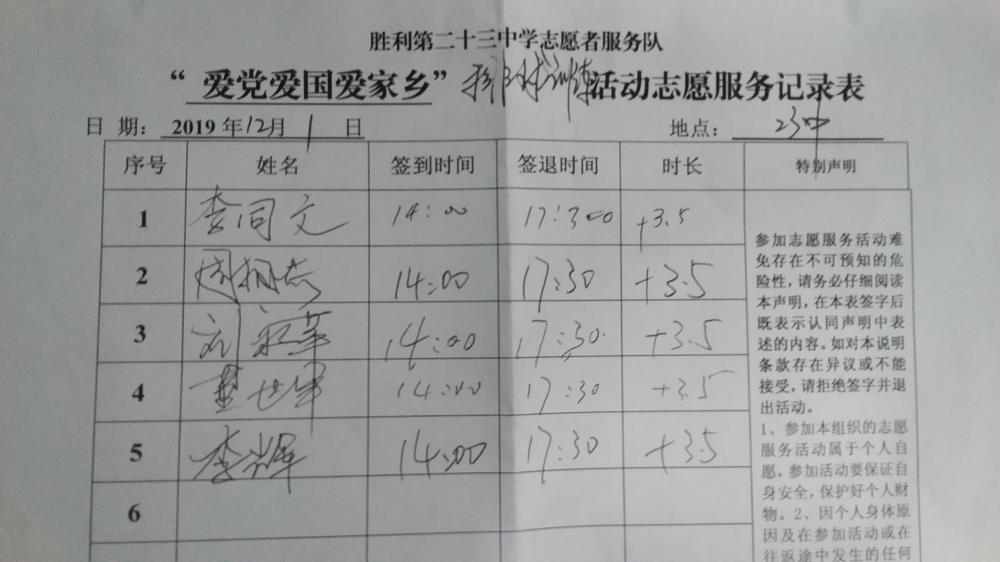 胜利第二十三中学志愿者服务队
“ 爱党爱国爱家乡” 排球训练活动志愿服务记录表
日 期: 2019 年12月1日 地点: 23中
序号 姓名 签到时间 签退时间 时长 特别声明
1 李同文 14:00 17:300 +3.5
2 周 14:00 17:30 +3.5
3 刘 14:00 17:30 +3.5
4 董世军 14:00 17:30 +3.5
5 李辉 14:00 17:30 +3.5
6
参加志愿服务活动难
免存在不可预知的危
险性,请务必仔细阅读
本声明,在本表签字后
既表示认同声明中表
述的内容。如对本说明
条款存在异议或不能
接受,请拒绝签字并退
出活动。
1、参加本组织的志愿
服务活动属于个人自
愿,参加活动要保证自
身安全,保护好个人财
物。2、因个人身体原
因及在参加活动或在
往返途中发生的任何